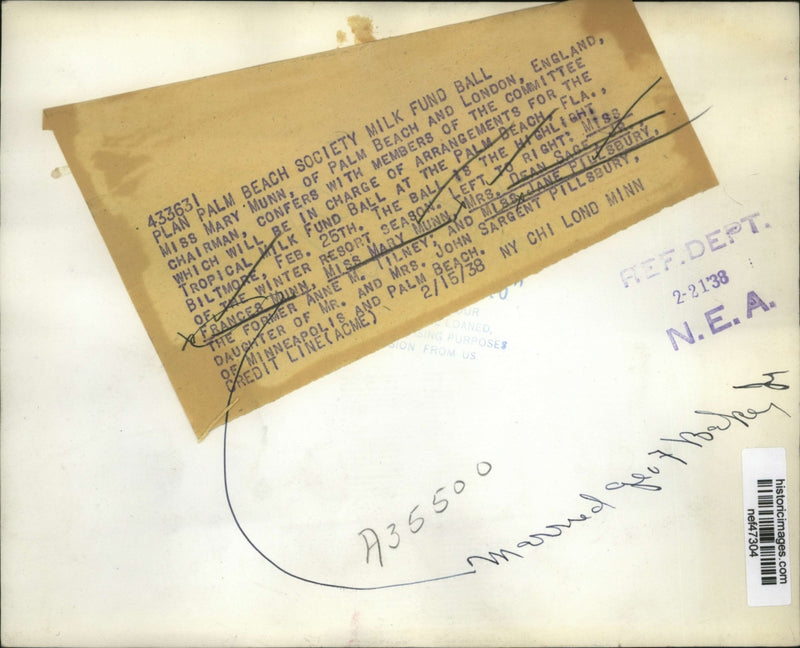 433631
PLAN PALM BEACH SOCIETY MILK FUND BALL
MISS MARY MUNN, OF PALM BEACH AND LONDON, ENGLAND,
CHAIRMAN, CONFERS WITH MEMBERS OF THE COMMITTEE
WHICH WILL BE IN CHARGE OF ARRANGEMENTS FOR THE
TROPICAL MILK FUND BALL AT THE PALM BEACH, FLA.,
BILTMORE, FEB. 25TH. THE BALL IS THE HIGHLIGHT
OF THE WINTER RESORT SEASON. LEFT TO RIGHT: MISS
FRANCES MUNN, MISS MARY MUNN, MRS. DEAN
THE FORMER ANNE M. TILNEY, AND MISS JANE PILLSBURY,
DAUGHTER OF MR. AND MRS. JOHN SARGENT PILLSBURY,
OF MINNEAPOLIS AND PALM BEACH.
CREDIT LINE (ACME) 2/15/38 NY CHI LOND MINN
LOANED,
PURPOSES
FROM US
REF. DEPT.
2-21'38
N.E.A.
Married Geo F Baker Jr
A35500
historicimages.com
nef47304